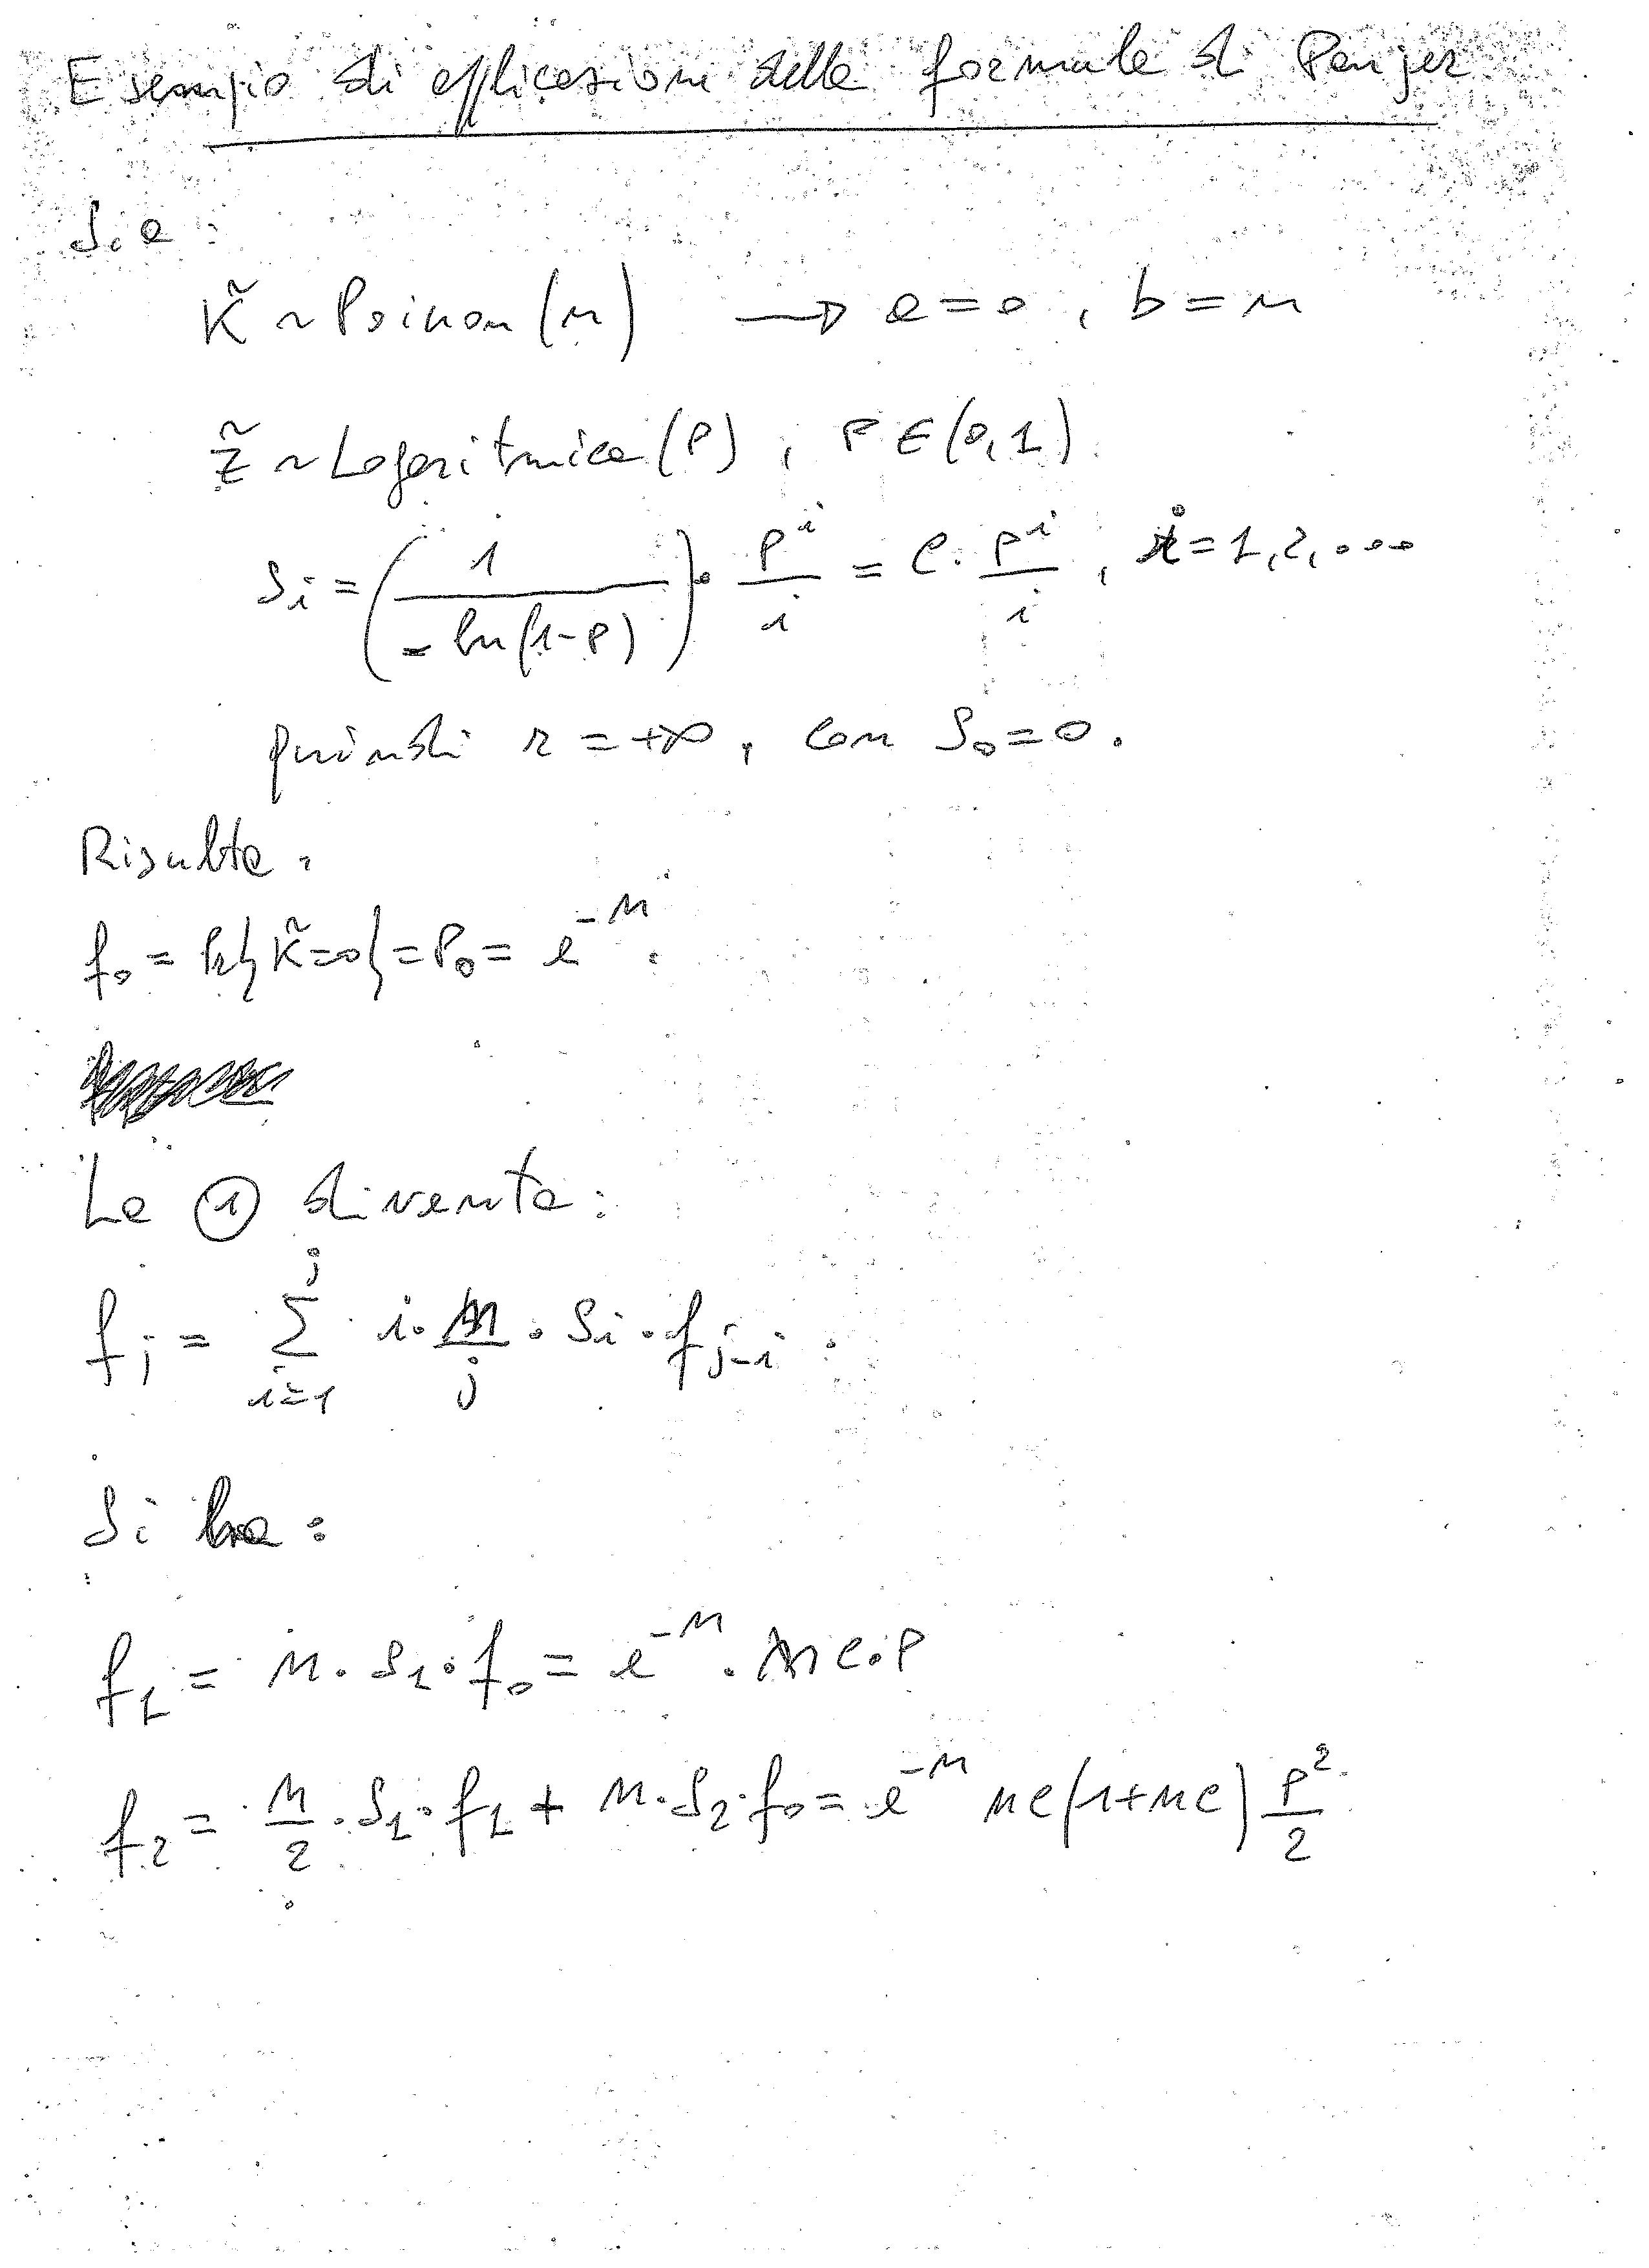 Esempio di applicazione della formula di Panjer
Sia:
K̃ ~ Poisson(n) → a=0, b=n
Z̃ ~ Logaritmica(p), p∈(0,1)
s_i = (1 / -ln(1-p)) · p^i / i = c · p^i / i, i=1,2,...
quindi r=+∞, con s_0=0.
Risulta:
f_0 = Pr{K̃=0} = P_0 = e^{-n}.
La ① diventa:
f_j = Σ_{i=1}^{j} i · n/j · s_i · f_{j-i}.
Si ha:
f_1 = n · s_1 · f_0 = e^{-n} · nc·p
f_2 = n/2 · s_1 · f_1 + n · s_2 · f_0 = e^{-n} nc(1+nc) p^2/2